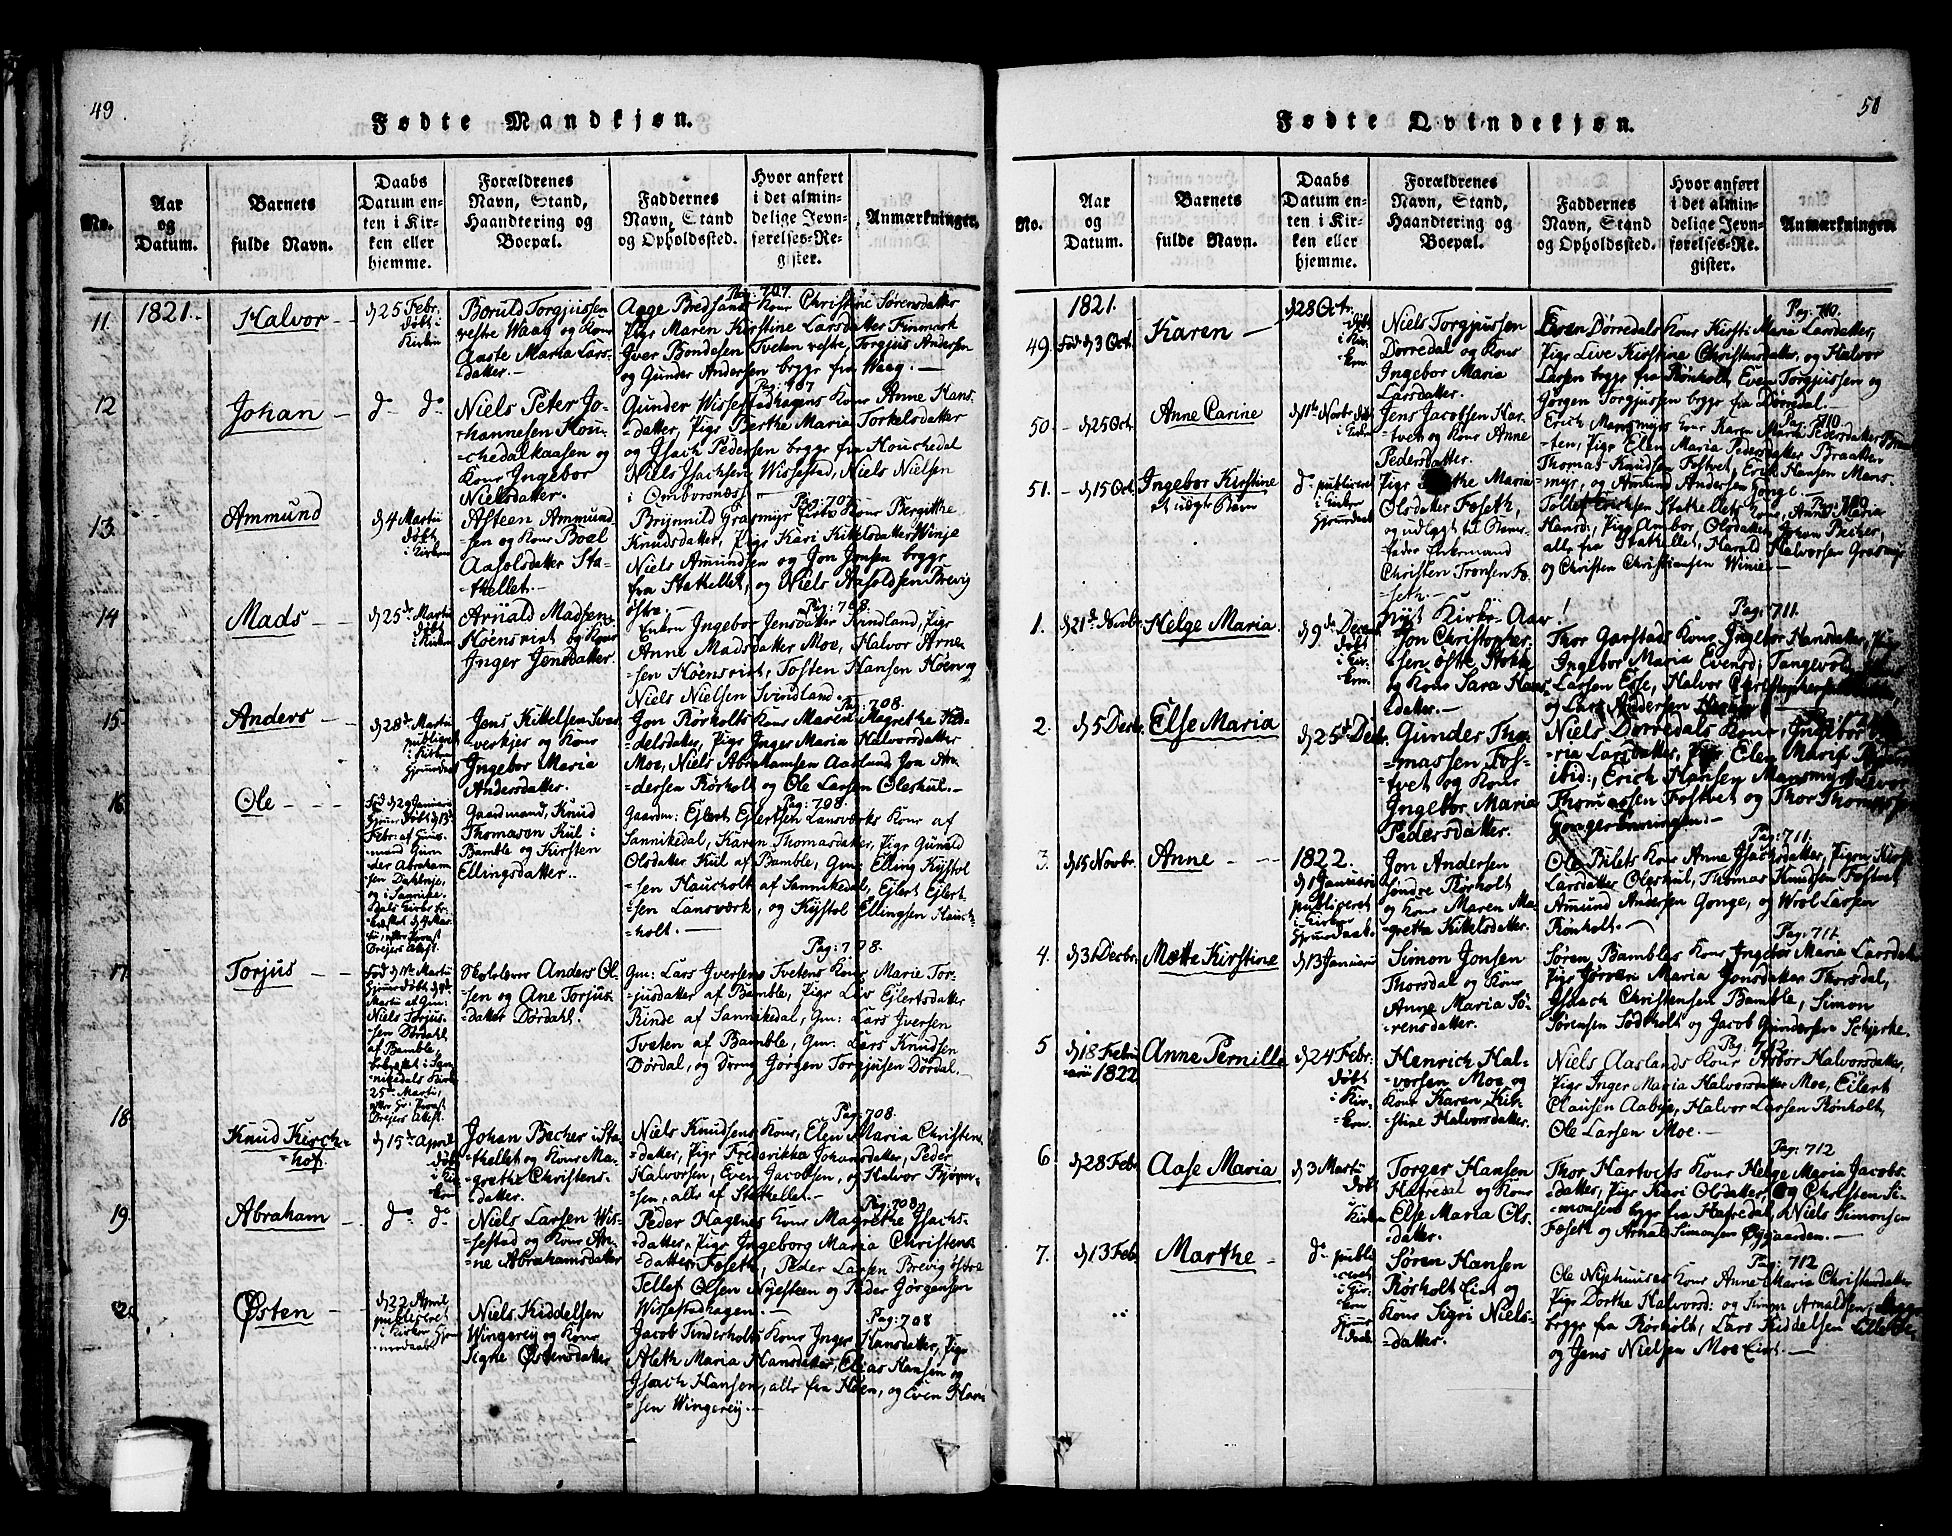 49.
Fødte Mandkjøn.
No.
Aar
og
Datum.
Barnets
fulde Navn.
Daabs
Datum en-
ten i Kir-
ken eller
hjemme.
Forældrenes
Navn, Stand,
Haandtering og
Boepæl.
Faddernes
Navn, Stand
og Opholdssted.
Hvor anført
i det almin-
delige Jevn-
førelses-Re-
gister.
Anmærkninger.
11. 1821. Halvor
d 25 Febr.
døbt i
Kirken
Boruld Torgjussen
vestre Waag og Kone
Aaste Maria Lars-
datter.
Pag: 707.
Aage Bredsand Kone Christine Sørensdatter
Pige Maren Kirstine Larsdatter Finmark
Iver Bondesen Tveten vestre, Torgius Andersen
og Gunder Andersen begge fra Waag.
12 Johan
do do
Niels Peter Jo-
hannesen Hou-
chedalkaasen og
Kone Ingebor
Nielsdatter.
Pag: 707
Gunder Wissestadhagens Kone Anne Hans-
datter, Pige Berthe Maria Torkelsdatter
og Isach Pedersen begge fra Houchedal
Niels Isachsen Wissestad, Niels Nielsen
i Omborsnes
13. Ammund
d 4 Martii
døbt
i Kirken
Asteen Ammund-
sen og Kone Boel
Aasolsdatter Sta-
thellet.
Pag: 707
Brynnild Grasmyr Kone Bergithe
Knudsdatter, Pige Kari Kittelsdatter Winje
Niels Amundsen og Jon Jonsen begge
fra Stathellet, og Niels Aasoldsen Brevig
østre.
14 Mads
d 25de Martii
døbt
i Kirken
Arnald Madsen
Høensvirt og Kone
Inger Jensdatter
Pag: 708.
Enken Ingebor Jensdatter Svindland, Pige
Anne Madsdatter Moe, Halvor Arne-
sen Høensvirt, Tosten Hansen Høen og
Niels Nielsen Svindland.
15. Anders
d 28de Martii
publiceret
i Kirken
hjemdøbt
Jens Kittelsen Svar-
verkjer og Kone
Ingebor Maria
Andersdatter.
Pag: 708.
Jon Rørholts Kone Maren Magrethe Kid-
delsdatter, Pige Inger Maria Halvorsdatter
Moe, Niels Abrahamsen Aasland Jon An-
dersen Rørholt og Ole Larsen Oleskul.
16. Ole
Fød d 29 Januari
hjemdøbt d 13de
Febr: af Huus-
mand Gun-
der Abraham-
sen
og i Sannike-
dals Kirke be-
kræftet d 4 Mar-
tii
Drejers Attest.
Gaardmand, Knud
Thomasen Kiil i
Bamble og Kirsten
Ellingsdatter.
Pag: 708.
Gaardm: Ejlert Ejlertsen Lansverks Kone af
Sannikedal, Karen Thomasdatter, Pige Gunild
Olsdatter Kiil af Bamble, Gm: Elling Kjøstol-
sen Hauchholt af Sannikedal, Ejlert Ejlert-
sen Lansverk, og Kjøstol Ellingsen Hauch-
holt.
17 Torjus
Fød d 11te Martii
hjemdøbt
Martii af Gm:
Niels Torjus-
sen Dørdahl
af Bamble,
bekræftet i San-
nikedals Kirke
25de Martii,
Drejers Attest.
Skolelærer Anders Ol-
sen og Ane Torjus-
datter Dørdahl.
Pag: 708.
Gm: Lars Iversens Tvetens Kone Marie Tor-
jusdatter af Bamble, Pige Liv Ejlertsdatter
Rinde af Sannikedal, Gm: Lars Iversen
Tveten af Bamble, Gm: Lars Knudsen
Dørdal, og Dreng Jørgen Torgjusen Dørdal.
18. Knud Kirch-
hof.
d 15de April
døbt
i Kir-
ken
Johan Becher i Sta-
thellet og Kone Ma-
grethe Christens-
datter.
Pag: 708.
Niels Knudsens Kone, Elen Maria Christens-
datter, Pige Frederikka Johansdatter, Peder
Halvorsen, Even Jacobsen, og Halvor Bjørn-
sen, alle af Stathellet.
19. Abraham
do do
Niels Larsen Wis-
sestad og Kone An-
ne Abrahamsdatter
Pag: 708.
Peder Hagenes Kone Magrethe Isachs-
datter, Pige Ingeborg Maria Christens-
datter Foseth, Peder Larsen Brevig østre
Tellef Olsen Nyesteen og Peder Jørgensen
Wissestadhagen.
20 Østen
d 22 April
publiceret
i Kirken hjem-
medaabt
Niels Kiddelsen
Wingereij og Kone
Signe Østensdatter
Pag: 708
Jacob Tinderholts Kone Inger Hansdatter, Pige
Aleth Maria Hansdatter, Elias Hansen og
Isach Hansen, alle fra Høen, og Even Han-
sen Wingereij.
50
Fødte Qvindekjøn.
No.
Aar
og
Datum.
Barnets
fulde Navn.
Daabs
Datum en-
ten i Kir-
ken eller
hjemme.
Forældrenes
Navn, Stand,
Haandtering og
Boepæl.
Faddernes
Navn, Stand
og Opholdssted.
Hvor anført
i det almin-
delige Jevn-
førelses-Re-
gister.
Anmærkninger.
1821.
49. Fød d 3 Oct. Karen
d 28 Oct.
døbt
i Kir-
ken
Niels Torgjussen
Dørredal og Kone
Ingebor Maria
Larsdatter.
Pag: 710.
Even Dørredals Kone Kirsti Maria Larsdatter,
Pige Live Kirstine Christensdatter, og Halvor
Larsen begge fra Rønholt, Even Torgjussen og
Jørgen Torgjussen begge fra Dørredal.
50. d 25 Oct. Anne Carine
d 11te Novbr døbt
i Kirken
Jens Jacobsen Har-
tven og Kone Anne
Pedersdatter.
Pag: 710
Erich Mansmyrs Kone Karen Maria Pedersdatter
Pige Elen Maria Pedersdatter Braatten
Thomas Knudsen Fostvet, Erich Hansen Mans-
myr, og Amund Andersen Gonge.
51. d 15 Oct. Ingebor Kirstine
et uægte Barn
do publiceret
i Kirken
hjemdøbt
Pige Marthe Maria
Olsdatter Foseth,
og udlagt til Barne-
fader Enkemand
Christen Tronsen Fo-
seth.
Pag: 710
Tollef Erichsen Stathellets Kone, Anne Maria
Hansd: Pige Ambor Olsdatter, Johan Becher,
alle fra Stathellet, Harald Halvorsen Grasmyr
og Christen Christiansen Winie.
Nyt Kirke-Aar!
1. d 21de Novbr. Helge Maria.
d 9de Decem
døbt
i Kir-
ken.
Jon Christopher-
sen østre Stokke
og Kone Sara Hans-
datter.
Pag: 711.
Thor Garstads Kone Ingebor Hansdatter, Pige
Ingebor Maria Evensd: Tangevold,
Larsen Esse, Halvor Christophersen
og Lars Andersen
2. d 5 Decbr. Else Maria
d 25de Decbr.
Gunder Tho-
massen Fos-
tvet og Kone
Ingebor Maria
Pedersdatter.
Niels Dørredals Kone, Ingebor Ma-
ria Larsdatter, Pige Elen Maria
ibid:, Erich Hansen Mansmyr, Halvor
Thomassen Fostvet og Thor Thomassen
3. d 15 Novbr. Anne
1822.
d 1 Januarii
publiceret
i Kirken
hjemdaabt
Jon Andersen
søndre Rørholt
og Kone Maren Ma-
gretha Kittelsdatter.
Pag: 711.
Ole Bilets Kone Anne Isachsdatter, Pigen Kirsti
Larsdatter Oleskul, Thomas Knudsen Fostvet
Amund Andersen Gonge, og Wrol Larsen
Rønholt.
4. d 3 Decbr. Mette Kirstine
d 13 Januarii
Simon Jonsen
Thorsdal og Kone
Anne Maria Sø-
rensdatter.
Pag: 711.
Søren Bambles Kone Ingebor Maria Larsdatter
Pige Jørran Maria Jonsdatter Thorsdal,
Isaach Christensen Bamble, Simon
Sørensen Sødtholt og Jacob Gundersen Schjerke.
5. d 18 Febru-
arii 1822 Anne Pernille
d 24 Febr:
døbt
i Kir-
ken.
Henrich Hal-
vorsen Moe og
Kone Karen Kir-
stine Halvorsdatter.
Pag: 712
Niels Aaslands Kone Asbor Halvorsdatter,
Pige Inger Maria Halvorsdatter Moe, Eilert
Clausen Aabye, Halvor Larsen Rønholt,
Ole Larsen Moe.
6. d 28 Febr. Aase Maria
d 3 Martii
døbt
i
Kirken
Torger Hansen
Hafredal og Kone
Else Maria Ols-
datter.
Pag: 712
Thor Hartvets Kone Helge Maria Jacobs-
datter, Pige Kari Olsdatter, og Christen Si-
monsen begge fra Hafredal, Niels Simonsen
Foseth og Arnal Simonsen Øygaarden.
7. d 13 Febr. Marthe
do publi-
ceret
i Kir-
ken
hjem-
døbt.
Søren Hansen
Rørholt Eiet og
Kone Sigri Niels-
datter.
Pag: 712
Ole Nyehuuses Kone Anne Maria Christensdatter
Pige Dorthe Halvorsd: og Simon Arnaldsen,
begge fra Rørholt, Lars Kiddelsen
og Jens Nielsen Moe Eiet.